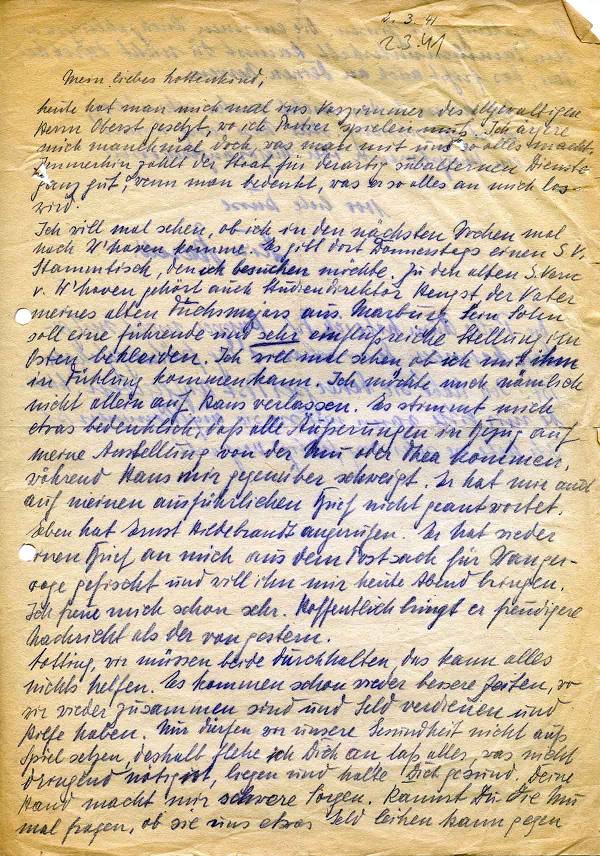 2.3.41
2.3.41
Mein liebes Lottenkind,
heute hat man mich mal ins Vorzimmer des allgewaltigen
Herrn Oberst gesetzt, wo ich Portier spielen muß. Ich ärgere
mich manchmal doch, was man mit uns so alles macht.
Immerhin zahlt der Staat für derartig subalternen Dienste
ganz gut, wenn man bedenkt, was er so alles an mich los-
wird.
Ich will mal sehen, ob ich in den nächsten Wochen mal
nach W'haven komme. Es gibt dort Donnerstags einen S.V.
Stammtisch, den ich besuchen möchte. Zu den alten S.Vern
v. W'haven gehört auch Studiendirektor Hengst der Vater
meines alten Fuchsmajors aus Marburg. Sein Sohn
soll eine führende und sehr einflußreiche Stellung im
Osten bekleiden. Ich will mal sehen, ob ich mit ihm
in Fühlung kommen kann. Ich möchte mich nämlich
nicht allein auf Hans verlassen. Es stimmt mich
etwas bedenklich, daß alle Äußerungen in Bezug auf
meine Anstellung von der Mu oder Thea kommen,
während Hans mir gegenüber schweigt. Er hat mir auch
auf meinen ausführlichen Brief nicht geantwortet.
Eben hat Ernst Hildebrandt angerufen. Er hat wieder
einen Brief an mich aus dem Postsack für Wanger-
ooge gefischt und will ihn mir heute Abend bringen.
Ich freue mich schon sehr. Hoffentlich bringt er freudigere
Nachricht als der von gestern.
Lotting, wir müssen beide durchhalten, das kann alles
nichts helfen. Es kommen schon wieder bessere Zeiten, wo
wir wieder zusammen sind und Geld verdienen und
Ruhe haben. Nur dürfen wir unsere Gesundheit nicht aufs
Spiel setzen, deshalb flehe ich Dich an laß alles, was nicht
dringend nötig ist, liegen und halte Dich gesund. Deine
Hand macht mir schwere Sorgen. Kannst Du die Mu
mal fragen, ob sie uns etwas Geld leihen kann gegen